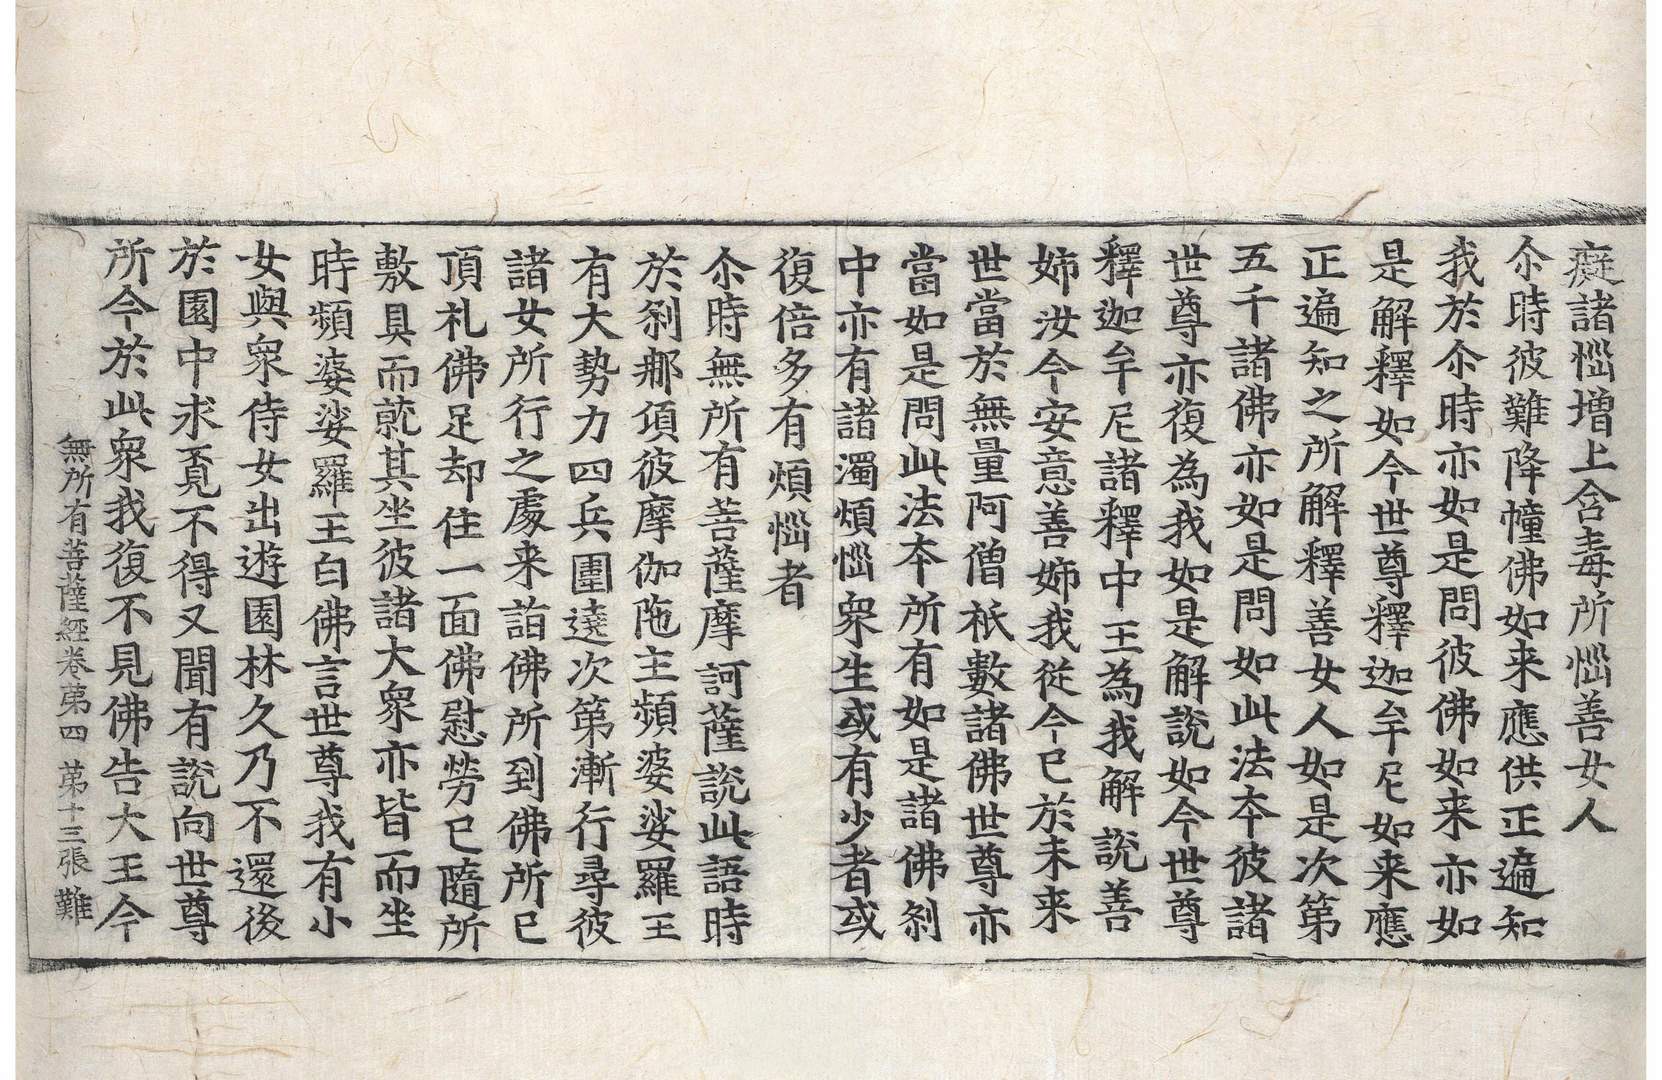 癡諸惱增上含毒所惱善女人
尒時彼難降幢佛如来應供正遍知
我於尒時亦如是問彼佛如来亦如
是解釋如今世尊釋迦牟尼如来應
正遍知之所解釋善女人如是次第
五千諸佛亦如是問如此法夲彼諸
世尊亦復為我如是解說如今世尊
釋迦牟尼諸釋中王為我解說善
姉汝今安意善姉我從今已於未来
世當於無量阿僧祇數諸佛世尊亦
當如是問此法夲所有如是諸佛剎
中亦有諸濁煩惱衆生或有少者或
復倍多有煩惱者
尒時無所有菩薩摩訶薩說此語時
於剎那頃彼摩伽陁主頻婆娑羅王
有大勢力四兵圍遶次第漸行尋彼
諸女所行之處来詣佛所到佛所已
頂礼佛足却住一面佛慰勞已隨所
敷具而就其坐彼諸大衆亦皆而坐
時頻婆娑羅王白佛言世尊我有小
女與衆侍女出遊園林久乃不還後
於園中求覓不得又聞有說向世尊
所今於此衆我復不見佛告大王今
無所有菩薩經卷苐四 苐十三張 難